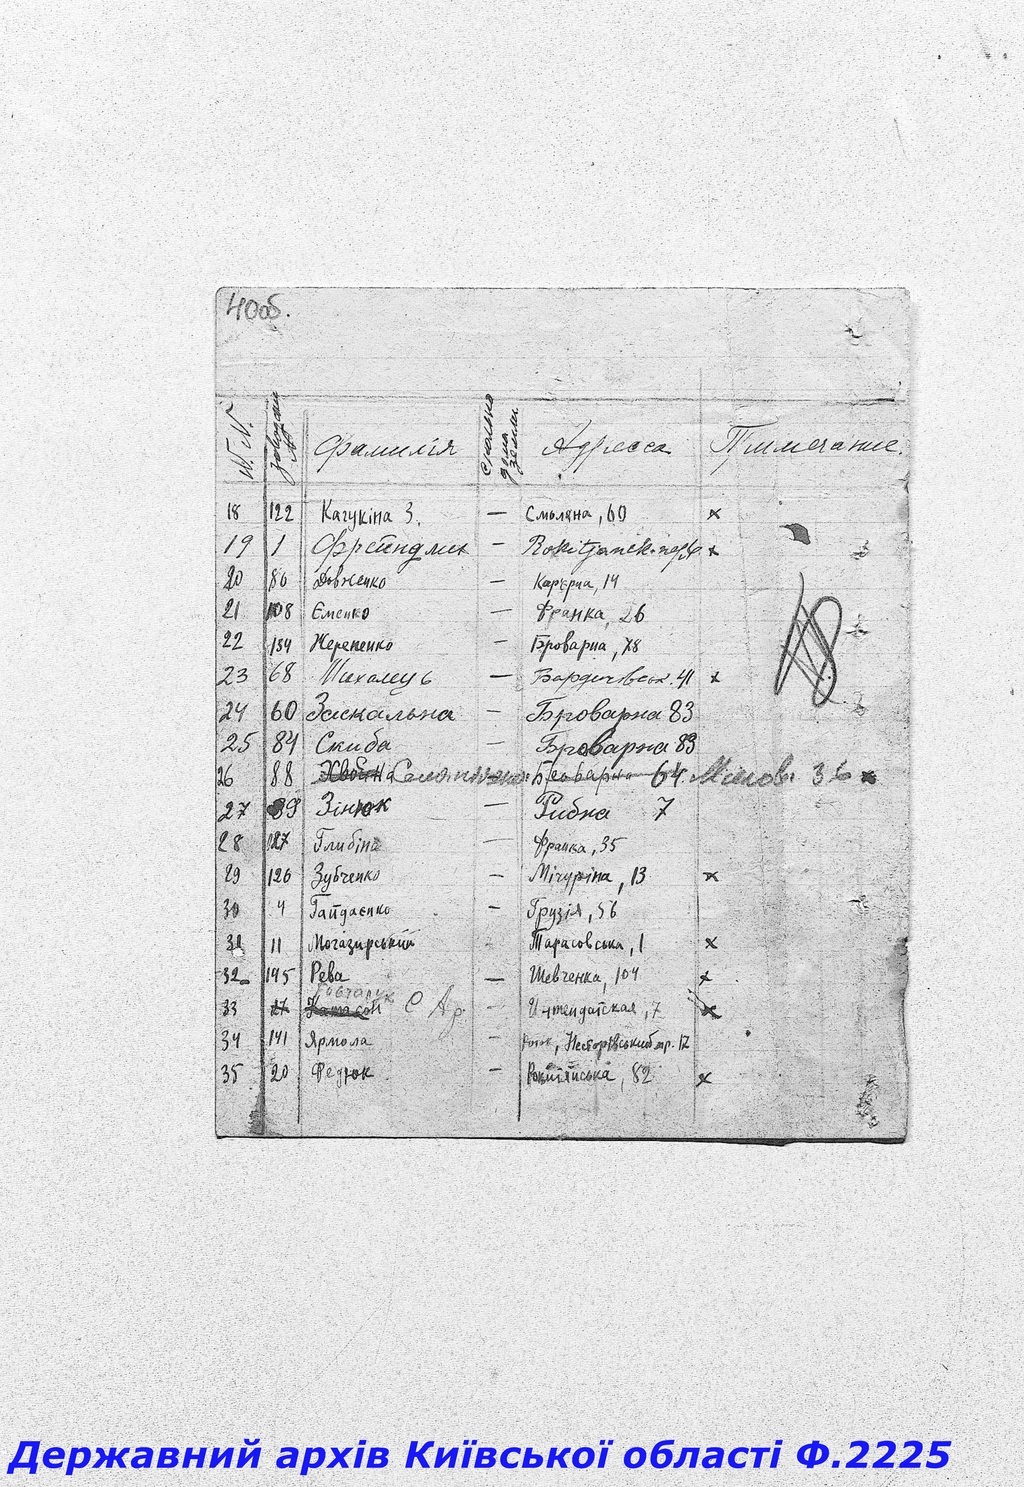 40об.
N.N. Фамилія Сколько дема земли Адресса Примечание.
18 122 Качукіна З. — Смоляна, 60 x
19 1 Фрейндлих — Rokitjansk. x
20 80 Довженко — Кар'єрна, 14
21 108 Єменко — Франка, 26
22 134 Черепенко — Броварна, 78
23 68 — Бардичівськ. 41 x
24 60 Заскальна — Броварна 83
25 84 Скиба — Броварна 83
26 88 Броварна 64. 36 x
27 39 Зінюк — Рибна 7
28 127 Глибіна — Франка, 35
29 126 Зубченко — Мічуріна, 13 x
30 4 Гайдаєнко — Грузія, 56
31 11 Могазирський - Тарасовська, 1 x
32 145 Рева — Шевченка, 104 x
33 27 - Интендатская, 7 x
34 141 Ярмола - Несторівський пр. 12
35 20 Федюк — Рокитянська, 82 x
Державний архів Київської області Ф.2225